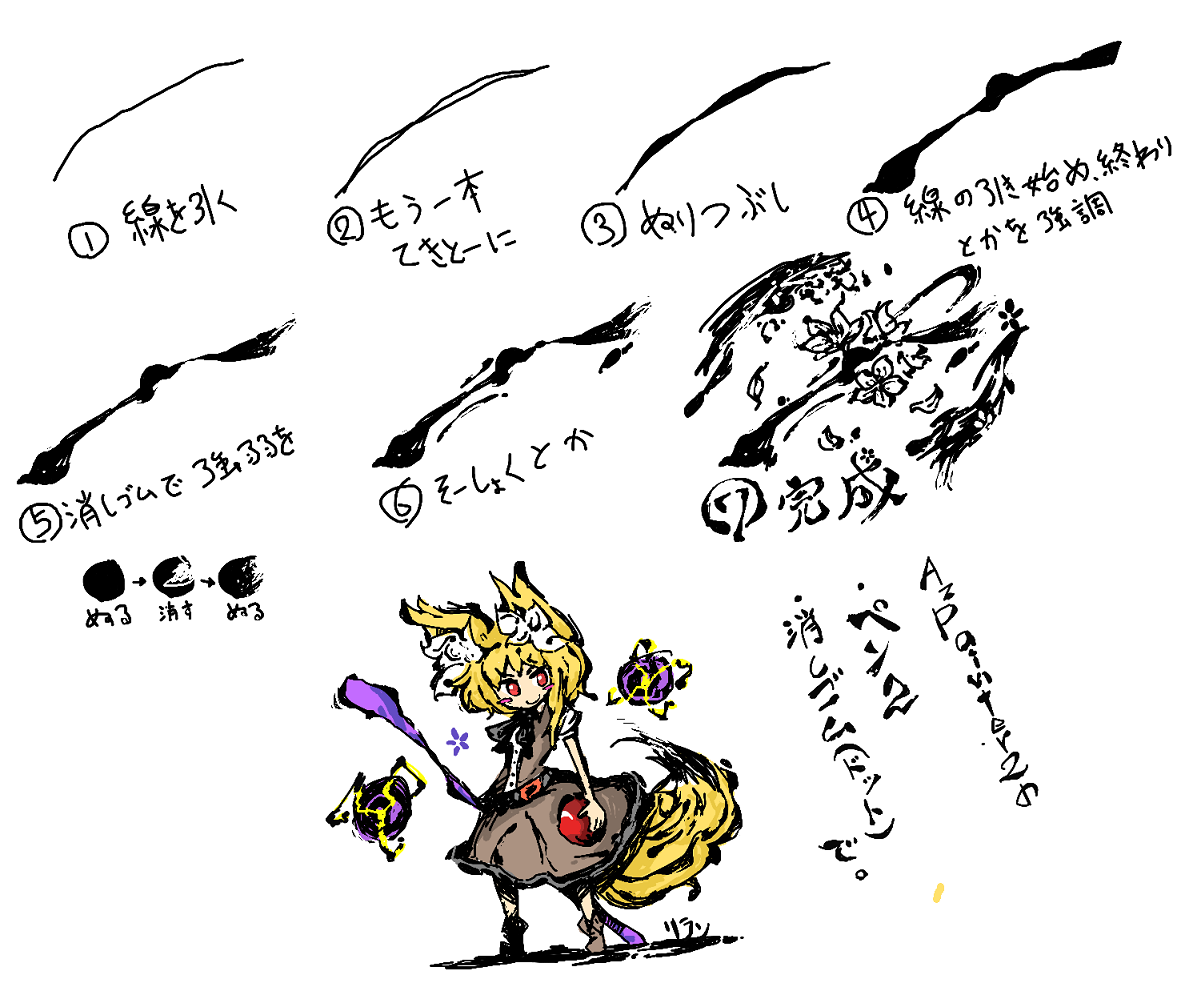 ① 線を引く
② もう一本
てきとーに
③ ぬりつぶし
④ 線の引き始め、終わり
とかを強調
⑤ 消しゴムで強弱を
⑥ そーしょくとか
⑦ 完成
ぬる→消す→ぬる
AzPainter2の
・ペン2
・消しゴム(ドット)
で。
リラン